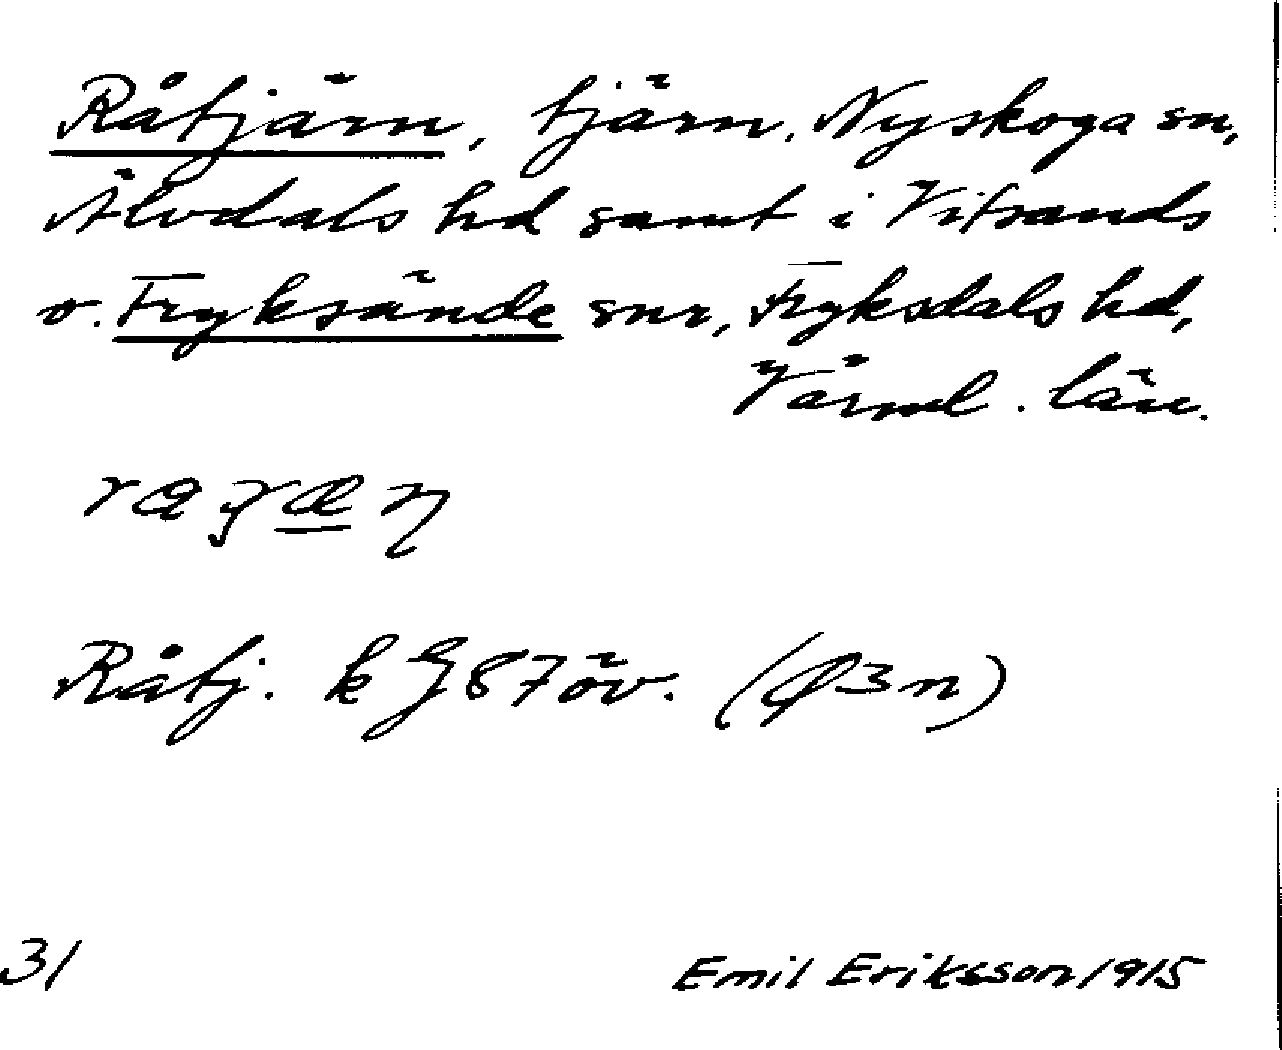 Råtjärn, tjärn, Nyskoga sn,
Älvdals hd samt i Vitsands
o. Fryksände snr, Fryksdals hd,
Värml. län.
Råtj. k G 87 öv. (Ø3n)
31
Emil Eriksson 1915